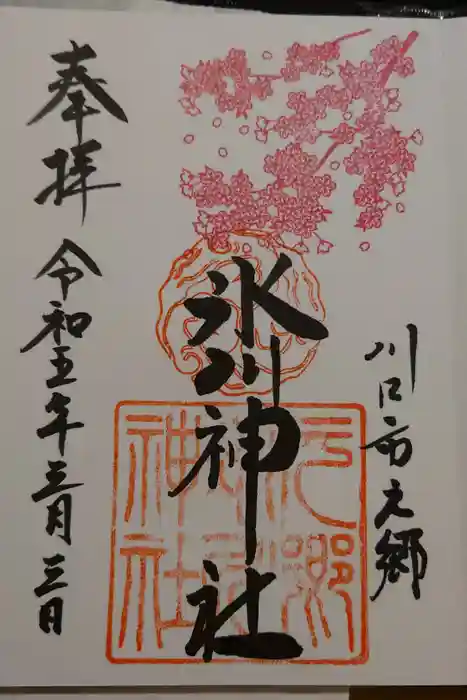 川口市元郷
氷川神社
奉拝
令和五年三月三日
元郷
氷川
神社